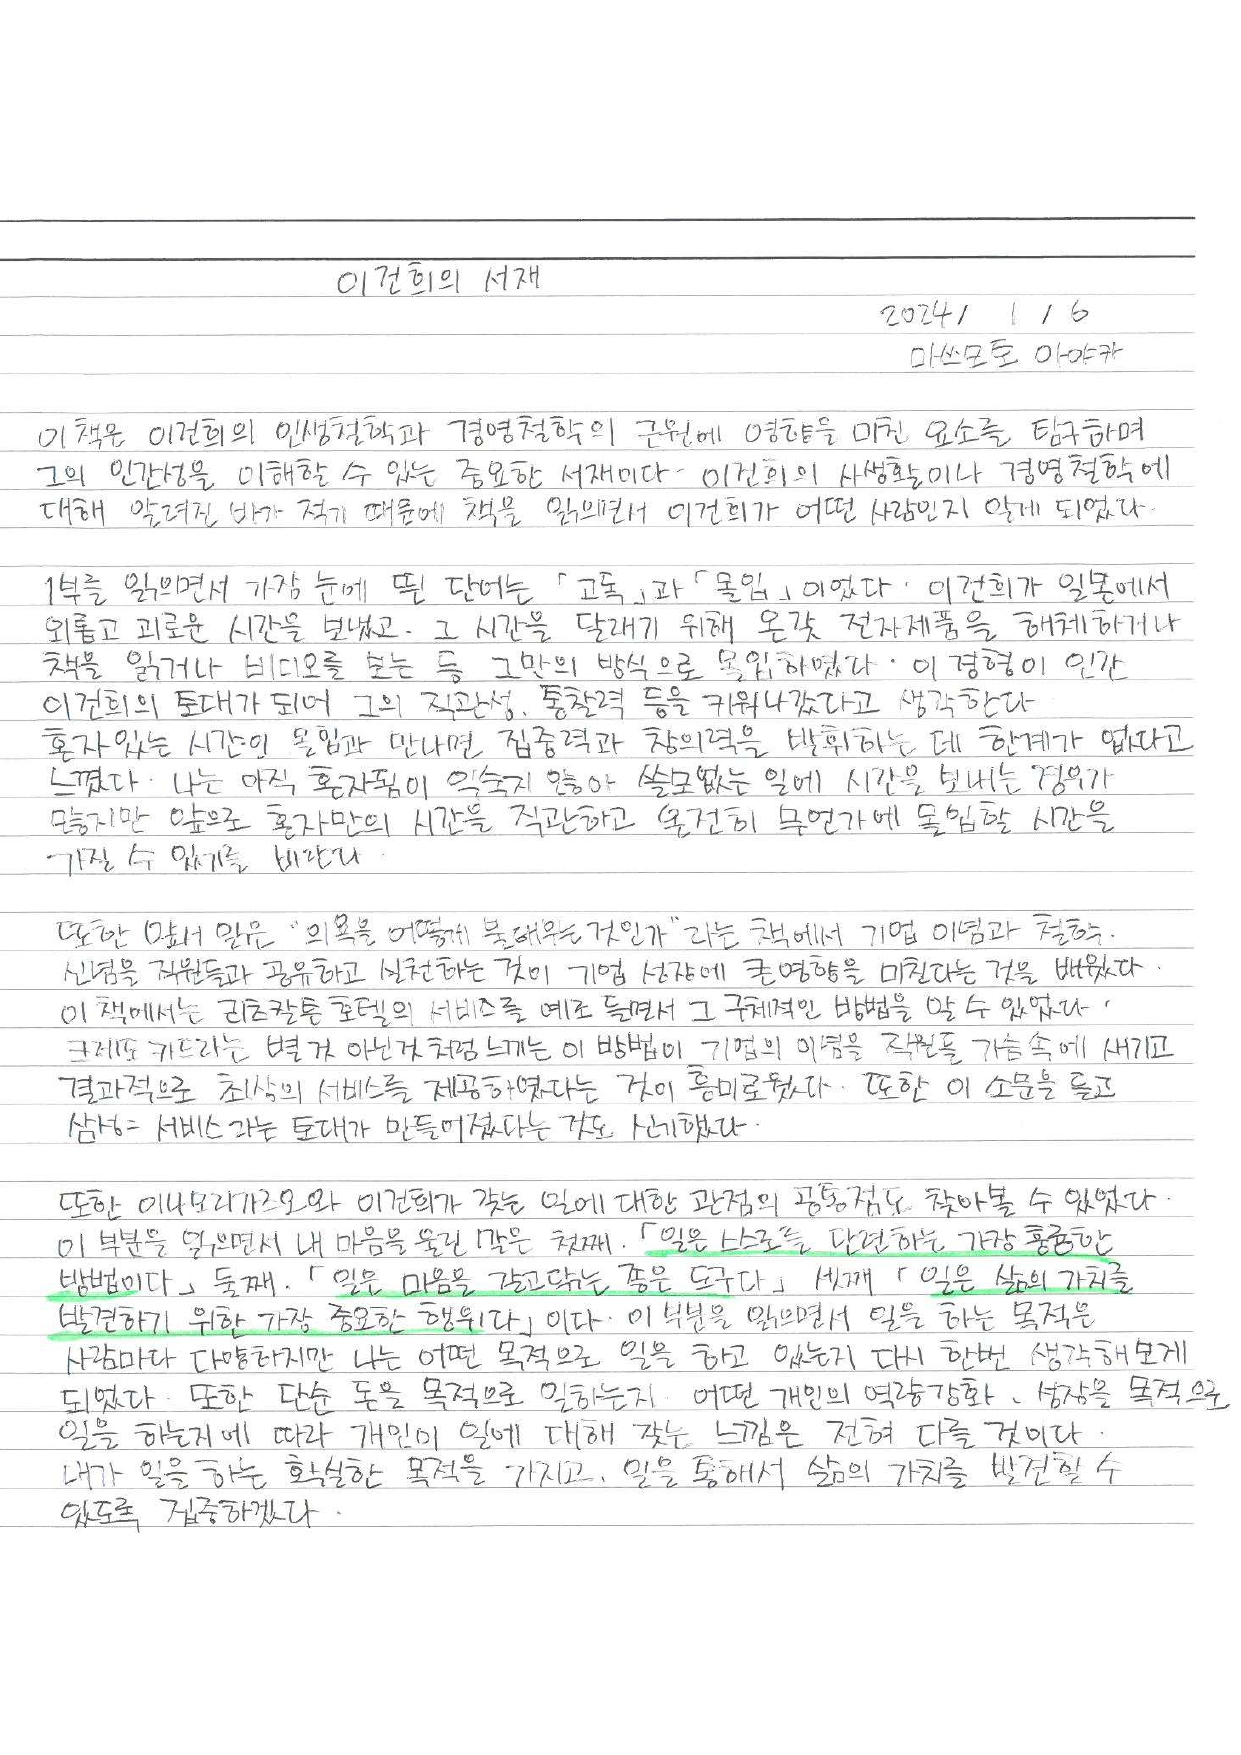 이건희의 서재
2024/ 1 / 6
마쓰모토 아야카
이 책은 이건희의 인생철학과 경영철학의 근원에 영향을 미친 요소를 탐구하며
그의 인간성을 이해할 수 있는 중요한 서재이다. 이건희의 사생활이나 경영철학에
대해 알려진 바가 적기 때문에 책을 읽으면서 이건희가 어떤 사람인지 알게 되었다.
1부를 읽으면서 가장 눈에 띈 단어는 「고독」과 「몰입」이었다. 이건희가 일본에서
외롭고 괴로운 시간을 보냈고, 그 시간을 달래기 위해 온갖 전자제품을 해체하거나
책을 읽거나 비디오를 보는 등 그만의 방식으로 몰입하였다. 이 경험이 인간
이건희의 토대가 되어 그의 직관성, 통찰력 등을 키워나갔다고 생각한다
혼자있는 시간이 몰입과 만나면 집중력과 창의력을 발휘하는 데 한계가 없다고
느꼈다. 나는 아직 혼자됨이 익숙치 않아 쓸모없는 일에 시간을 보내는 경우가
많지만 앞으로 혼자만의 시간을 직관하고 온전히 무언가에 몰입할 시간을
가질 수 있기를 바란다.
또한 앞서 읽은 "의욕을 어떻게 불태우는것인가"라는 책에서 기업 이념과 철학,
신념을 직원들과 공유하고 실천하는 것이 기업 성장에 큰영향을 미친다는 것을 배웠다.
이 책에서는 리츠칼튼 호텔의 서비스를 예로 들면서 그 구체적인 방법을 알 수 있었다.
크레도 카드라는 별것 아닌것처럼 느끼는 이 방법이 기업의 이념을 직원들 가슴속에 새기고
결과적으로 최상의 서비스를 제공하였다는 것이 흥미로웠다. 또한 이 소문을 듣고
삼성= 서비스라는 토대가 만들어졌다는 것도 신기했다.
또한 이나모리가즈오와 이건희가 갖는 일에 대한 관점의 공통점도 찾아볼 수 있었다.
이 부분을 읽으면서 내 마음을 울린 말은 첫째, 「일은 스스로를 단련하는 가장 훌륭한
방법이다」 둘째, 「일은 마음을 갈고닦는 좋은 도구다」 셋째 「일은 삶의 가치를
발견하기 위한 가장 중요한 행위다」이다. 이 부분을 읽으면서 일을 하는 목적은
사람마다 다양하지만 나는 어떤 목적으로 일을 하고 있는지 다시 한번 생각해보게
되었다. 또한 단순 돈을 목적으로 일하는지, 어떤 개인의 역량강화, 성장을 목적으로
일을 하는지에 따라 개인이 일에 대해 갖는 느낌은 전혀 다를 것이다.
내가 일을 하는 확실한 목적을 가지고, 일을 통해서 삶의 가치를 발견할 수
있도록 집중하겠다.